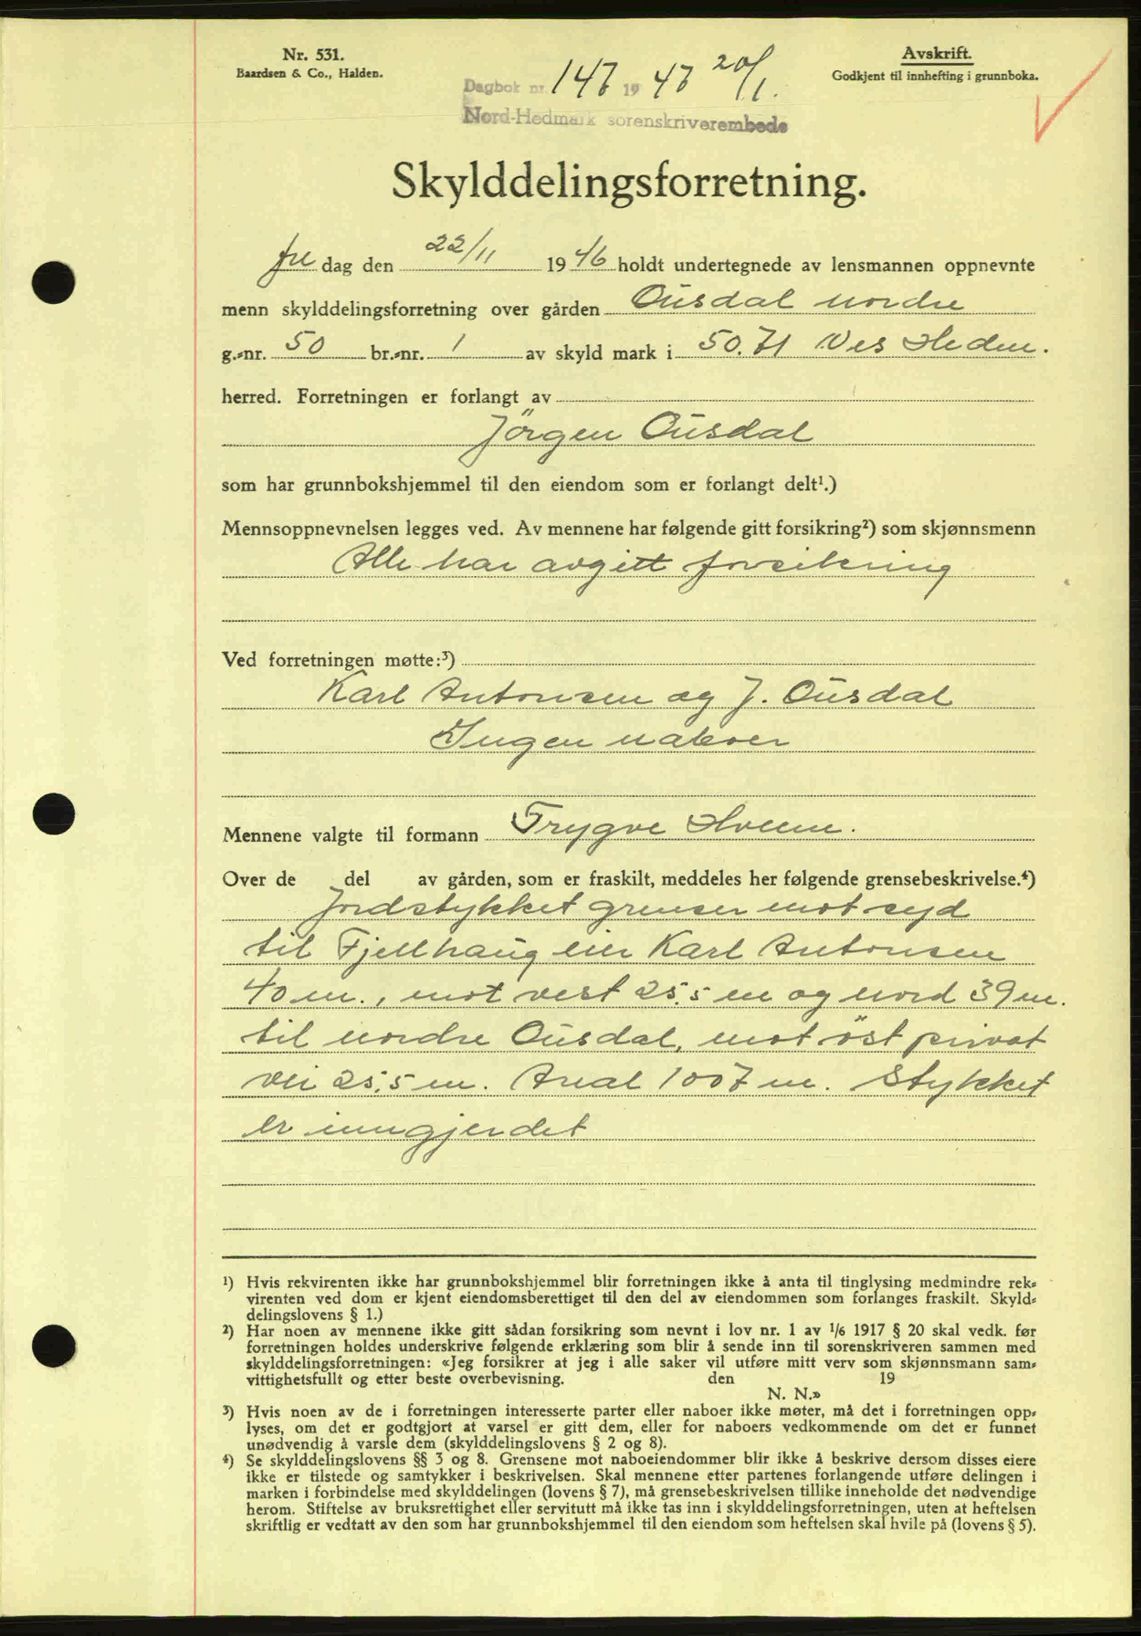 Nr. 531.
Baardsen & Co., Halden.
Avskrift.
Godkjent til innhefting i grunnboka.
Dagbok nr. 147 1947 20/1.
Nord-Hedmark sorenskriverembede
Skylddelingsforretning.
fre dag den 22/11 1946 holdt undertegnede av lensmannen oppnevnte
menn skylddelingsforretning over gården Ousdal nordre
g.-nr. 50 br.-nr. 1 av skyld mark i 50.71 Nes Hedm.
herred. Forretningen er forlangt av
Jörgen Ousdal
som har grunnbokshjemmel til den eiendom som er forlangt delt¹.)
Mennsoppnevnelsen legges ved. Av mennene har følgende gitt forsikring²) som skjønnsmenn
Alle har avgitt forsikring
Ved forretningen møtte:³)
Karl Antonsen og J. Ousdal
Ingen naboer
Mennene valgte til formann Trygve Hveem.
Over de del av gården, som er fraskilt, meddeles her følgende grensebeskrivelse.⁴)
Jordstykket grenser mot syd
til Fjellhaug eier Karl Antonsen
40 m., mot vest 25,5 m og nord 39 m.
til nordre Ousdal, mot öst privat
vei 25,5 m. Areal 1007 m. Stykket
er inngjerdet
¹) Hvis rekvirenten ikke har grunnbokshjemmel blir forretningen ikke å anta til tinglysing medmindre rek-
virenten ved dom er kjent eiendomsberettiget til den del av eiendommen som forlanges fraskilt. Skyld-
delingslovens § 1.)
²) Har noen av mennene ikke gitt sådan forsikring som nevnt i lov nr. 1 av 1/6 1917 § 20 skal vedk. før
forretningen holdes underskrive følgende erklæring som blir å sende inn til sorenskriveren sammen med
skylddelingsforretningen: «Jeg forsikrer at jeg i alle saker vil utføre mitt verv som skjønnsmann sam-
vittighetsfullt og etter beste overbevisning. den 19
N. N.»
³) Hvis noen av de i forretningen interesserte parter eller naboer ikke møter, må det i forretningen opp-
lyses, om det er godtgjort at varsel er gitt dem, eller for naboers vedkommende om det er funnet
unødvendig å varsle dem (skylddelingslovens § 2 og 8).
⁴) Se skylddelingslovens §§ 3 og 8. Grensene mot naboeiendommer blir ikke å beskrive dersom disses eiere
ikke er tilstede og samtykker i beskrivelsen. Skal mennene etter partenes forlangende utføre delingen i
marken i forbindelse med skylddelingen (lovens § 7), må grensebeskrivelsen tillike inneholde det nødvendige
herom. Stiftelse av bruksrettighet eller servitutt må ikke tas inn i skylddelingsforretningen, uten at heftelsen
skriftlig er vedtatt av den som har grunnbokshjemmel til den eiendom som heftelsen skal hvile på (lovens § 5).